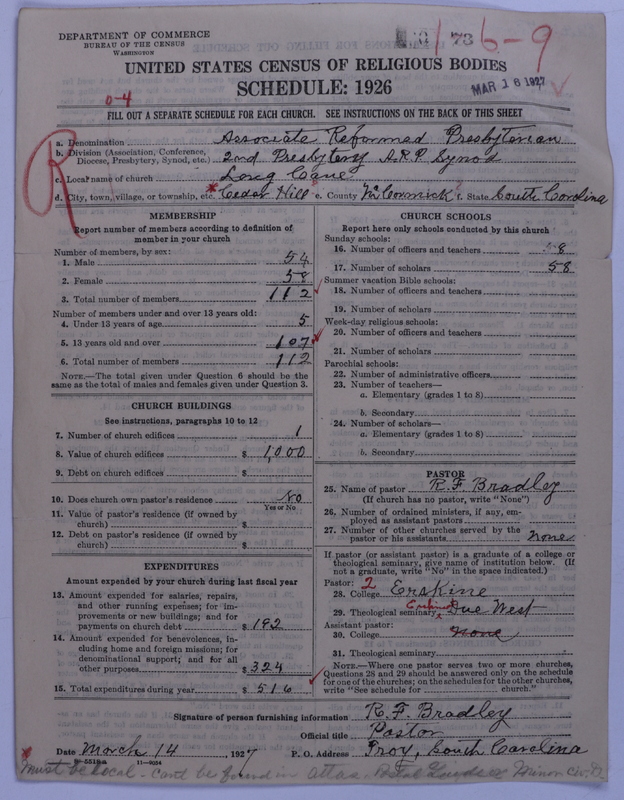 DEPARTMENT OF COMMERCE
BUREAU OF THE CENSUS
WASHINGTON
73
6-9
UNITED STATES CENSUS OF RELIGIOUS BODIES
SCHEDULE: 1926
MAR 16 1927
0-4
FILL OUT A SEPARATE SCHEDULE FOR EACH CHURCH. SEE INSTRUCTIONS ON THE BACK OF THIS SHEET
R
a. Denomination Associate Reformed Presbyterian
b. Division (Association, Conference, Diocese, Presbytery, Synod, etc.) 2nd Presbytery A.R.P. Synod
c. Local name of church Long Cane
d. City, town, village, or township, etc. * Cedar Hill e. County McCormick f. State South Carolina
MEMBERSHIP
Report number of members according to definition of
member in your church
Number of members, by sex:
1. Male 54
2. Female 58
3. Total number of members 112
Number of members under and over 13 years old:
4. Under 13 years of age 5
5. 13 years old and over 107
6. Total number of members 112
NOTE.—The total given under Question 6 should be the
same as the total of males and females given under Question 3.
CHURCH BUILDINGS
See instructions, paragraphs 10 to 12
7. Number of church edifices 1
8. Value of church edifices $ 1,000
9. Debt on church edifices $
10. Does church own pastor's residence No
Yes or No
11. Value of pastor's residence (if owned by
church) $
12. Debt on pastor's residence (if owned by
church) $
EXPENDITURES
Amount expended by your church during last fiscal year
13. Amount expended for salaries, repairs,
and other running expenses; for im-
provements or new buildings; and for
payments on church debt $ 192
14. Amount expended for benevolences, in-
cluding home and foreign missions; for
denominational support; and for all
other purposes $ 324
15. Total expenditures during year $ 516
CHURCH SCHOOLS
Report here only schools conducted by this church
Sunday schools:
16. Number of officers and teachers 8
17. Number of scholars 58
Summer vacation Bible schools:
18. Number of officers and teachers
19. Number of scholars
Week-day religious schools:
20. Number of officers and teachers
21. Number of scholars
Parochial schools:
22. Number of administrative officers
23. Number of teachers—
a. Elementary (grades 1 to 8)
b. Secondary
24. Number of scholars—
a. Elementary (grades 1 to 8)
b. Secondary
PASTOR
25. Name of pastor R. F. Bradley
(If church has no pastor, write "None")
26. Number of ordained ministers, if any, em-
ployed as assistant pastors
27. Number of other churches served by the
pastor or his assistants none
If pastor (or assistant pastor) is a graduate of a college or
theological seminary, give name of institution below. (If
not a graduate, write "No" in the space indicated.)
Pastor: 2
28. College Erskine
29. Theological seminary Erskine Due West
Assistant pastor:
30. College none
31. Theological seminary
NOTE.—Where one pastor serves two or more churches,
Questions 28 and 29 should be answered only on the schedule
for one of the churches; on the schedules for the other churches,
write "See schedule for church."
Signature of person furnishing information R. F. Bradley
Official title Pastor
Date March 14, 1927 P. O. Address Troy, South Carolina
11—8024
* Must be local. Can't be found in atlas. Postal Guide or Minor Civ. D.